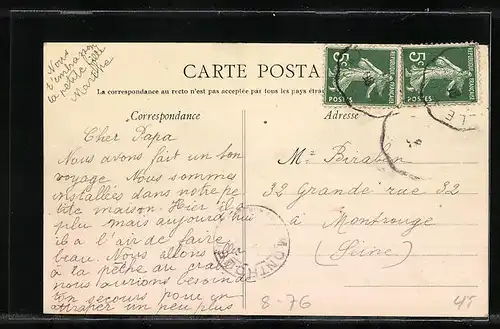 Nous
t'embrasson
la petite
Marthe
CARTE POSTA
La correspondance au recto n'est pas acceptée par tous les pays étra
5c
REPUBLIQUE FRANÇAISE
POSTES
5c
REPUBLIQUE FRANÇAISE
POSTES
LE
Correspondance
Adresse
Cher Papa
Nous avons fait un bon
voyage. Nous sommes
installées dans notre pe
tite maison. Hier il a
plu mais aujourd'hui
il a l'air de faire
beau. Nous allons
à la pêche au
nous aurions besoin de
ton secours pour en
attraper un peu plus
Mr Biraben
32 Grande rue 32
à Montrouge
(Seine)
MONTROUGE
8-76
45